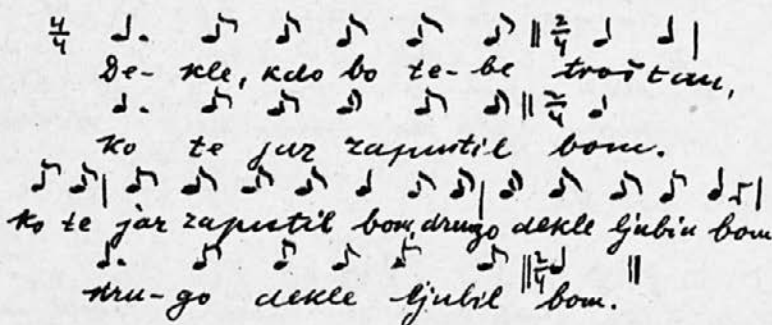 4/4 2/4
De-kle, kdo bo te-be troštau,
2/4
ko te jaz zapustil bom.
ko te jaz zapustil bom, drugo dekle ljubiu bom
2/4
dru-go dekle ljubil bom.